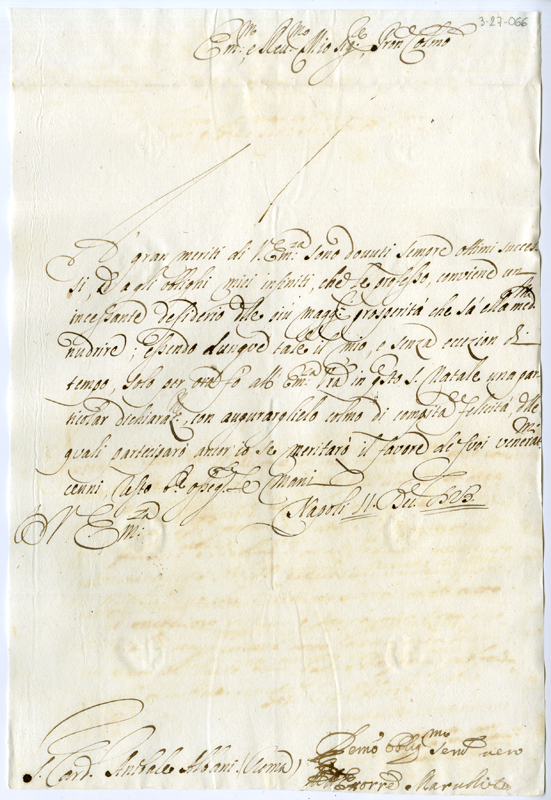 3-27-066
Em.mo e Rev.mo Mio Sig.re Pron Colmo
A gran meriti di V. Em.za sono dovuti sempre ottimi succes
si, & a gli oblighi miei infiniti, che le professo, conviene un
incessante desiderio delle più magg. prosperità che sa ella med.ma
nudrire; essendo dunque tale il mio, e senza eccezion di
tempo, solo per fo all' Em.za Vra in qsto S. Natale una par
ticolar dichiaraz.e, con augurarglielo colmo di compita felicità, delle
quali parteciparò ancor io se meritarò il favore de suoi venerat.mi
cenni, e resto mani
Napoli 11 Dec.
V. Em.za
S. Card. Annibale Albani (Roma)
oblig.mo Serv. vero